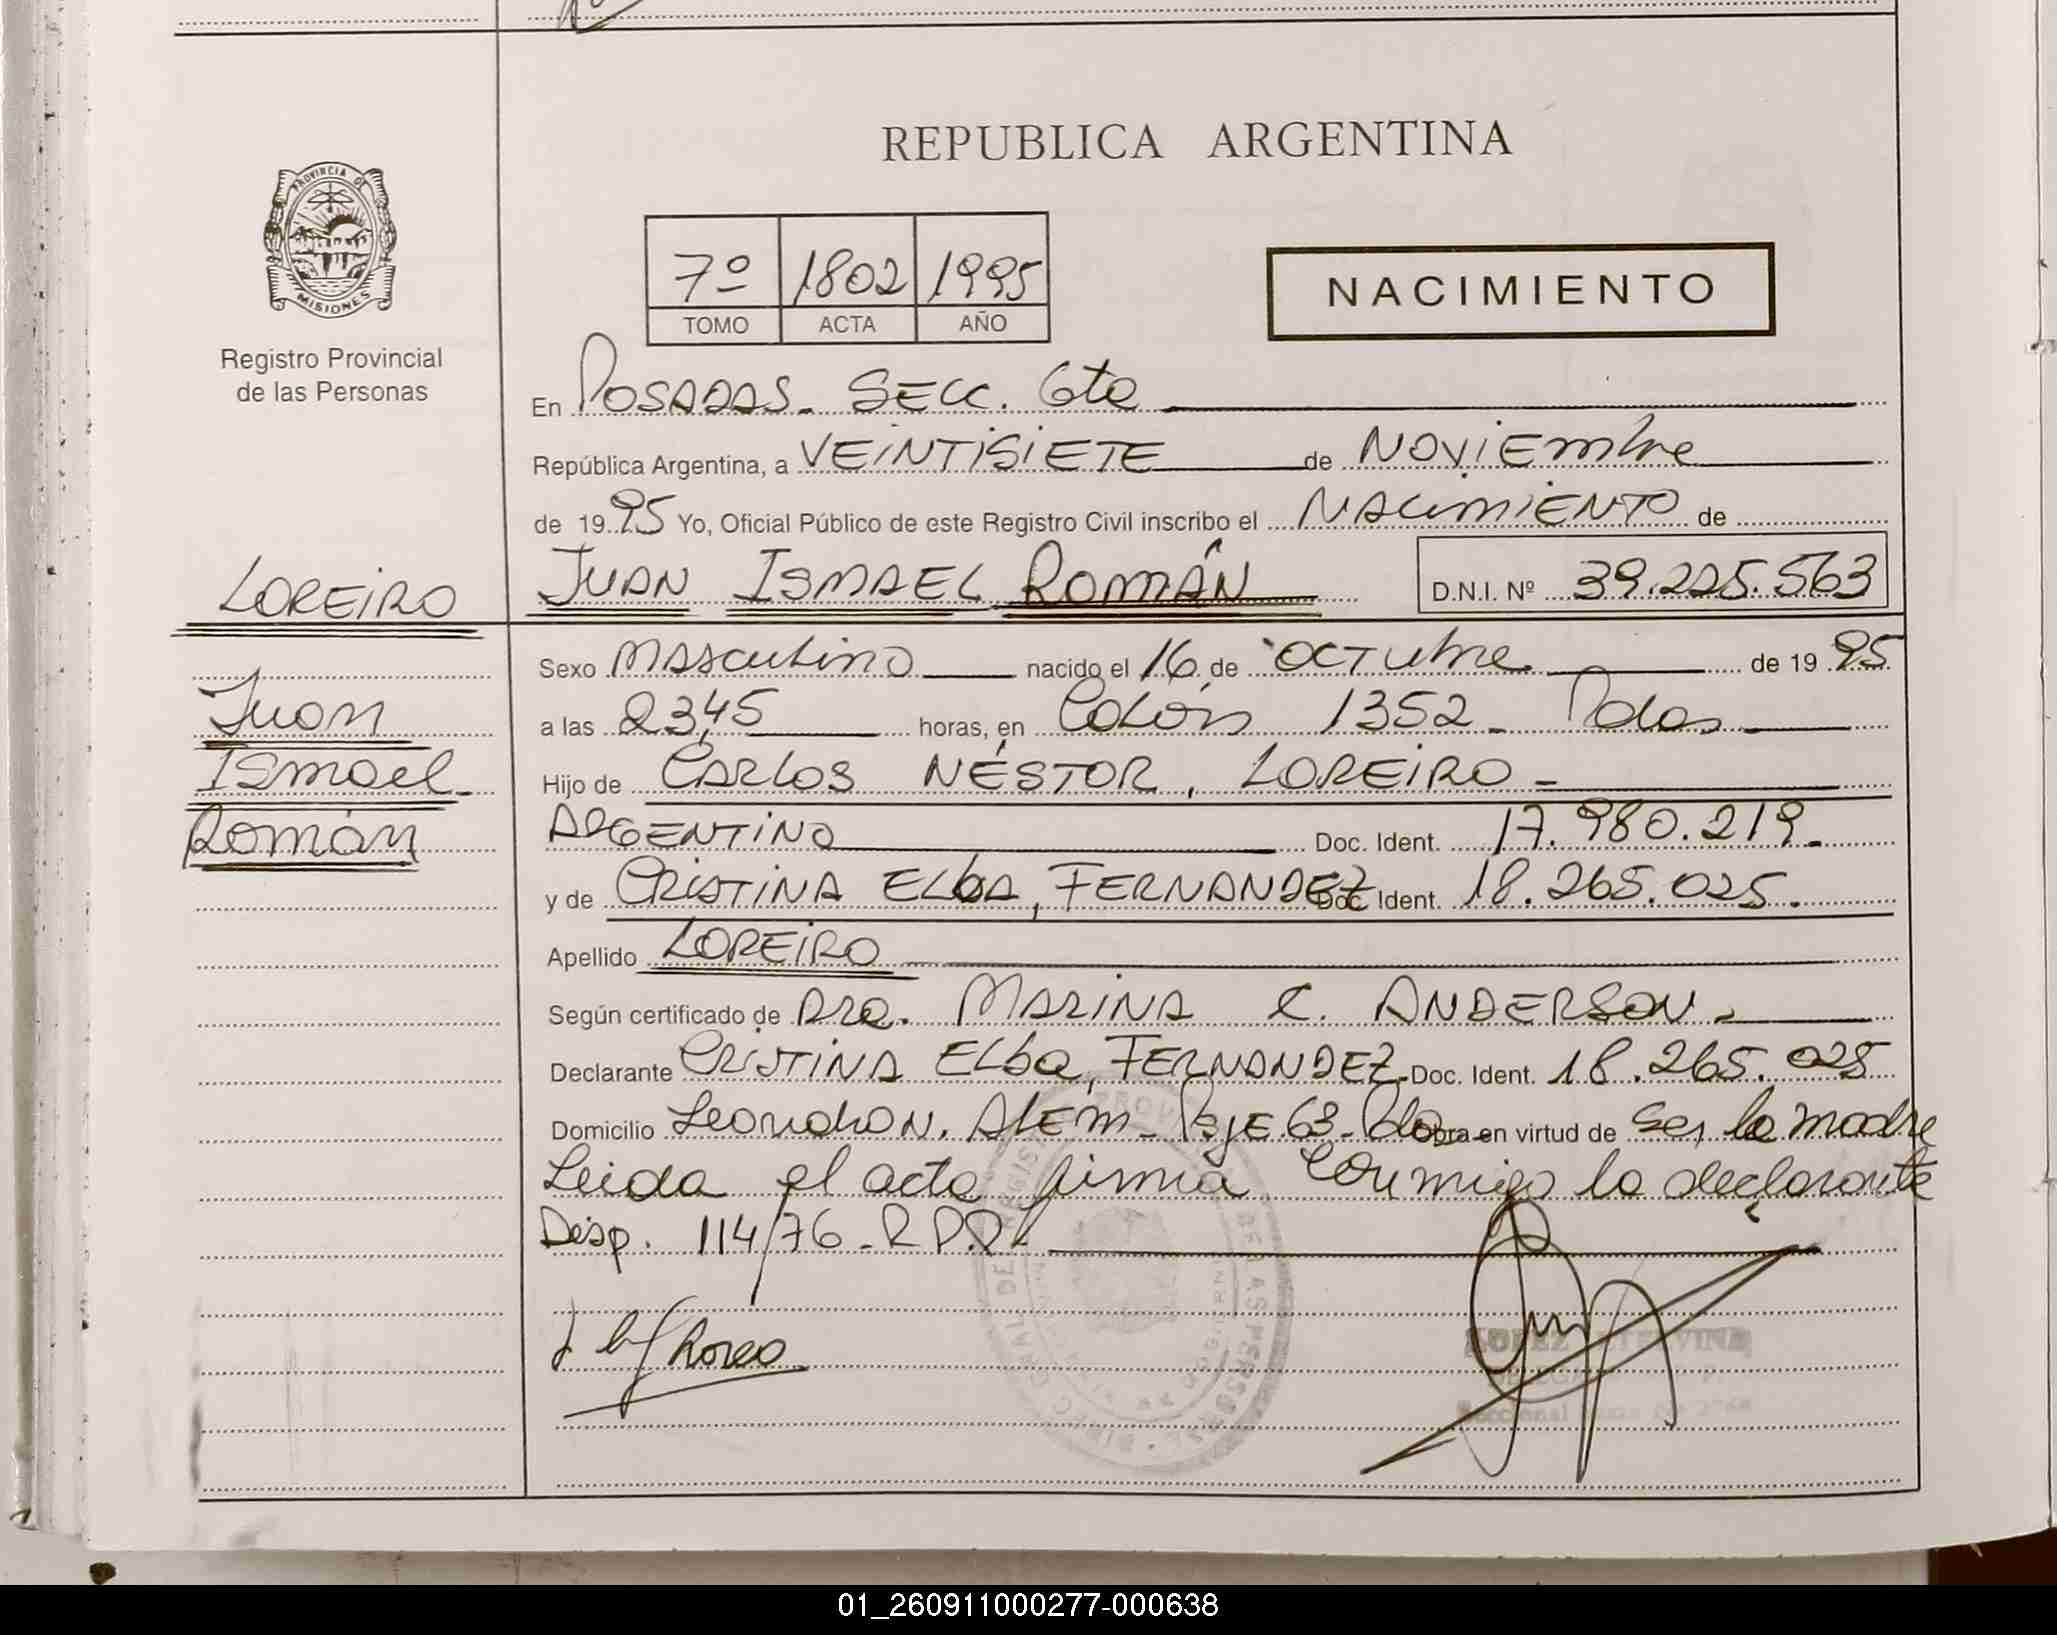 REPUBLICA ARGENTINA
PROVINCIA DE
MISIONES
Registro Provincial
de las Personas
7º 1802 1995
TOMO ACTA AÑO
NACIMIENTO
En POSADAS. SECC. 6ta
República Argentina, a VEINTISIETE de NOVIEMbre
de 1995 Yo, Oficial Público de este Registro Civil inscribo el NACIMIENTO de
LOREIRO
JUAN ISMAEL ROMÁN D.N.I. Nº 39.225.563
Juan
Ismael
Román
Sexo MASculino nacido el 16 de OCTUbre de 1995
a las 23,45 horas, en Colón 1352 - Pdas
Hijo de CARLOS NÉSTOR, LOREIRO -
ARGENTINO Doc. Ident. 17.980.219.
y de CRISTINA ELbA, FERNANDEZ Doc. Ident. 18.265.025.
Apellido LOREIRO
Según certificado de Dra. MARINA C. ANDERSON.
Declarante CRISTINA ELba, FERNANDEZ Doc. Ident. 18.265.025
Domicilio Leandro N. Além - Psje 63 - Pdas Obra en virtud de ser la madre
Leida el acta firma conmigo la declarante
Disp. 114/76 - R.P.P.
LOPEZ ETELVINA
Seccional
01_260911000277-000638